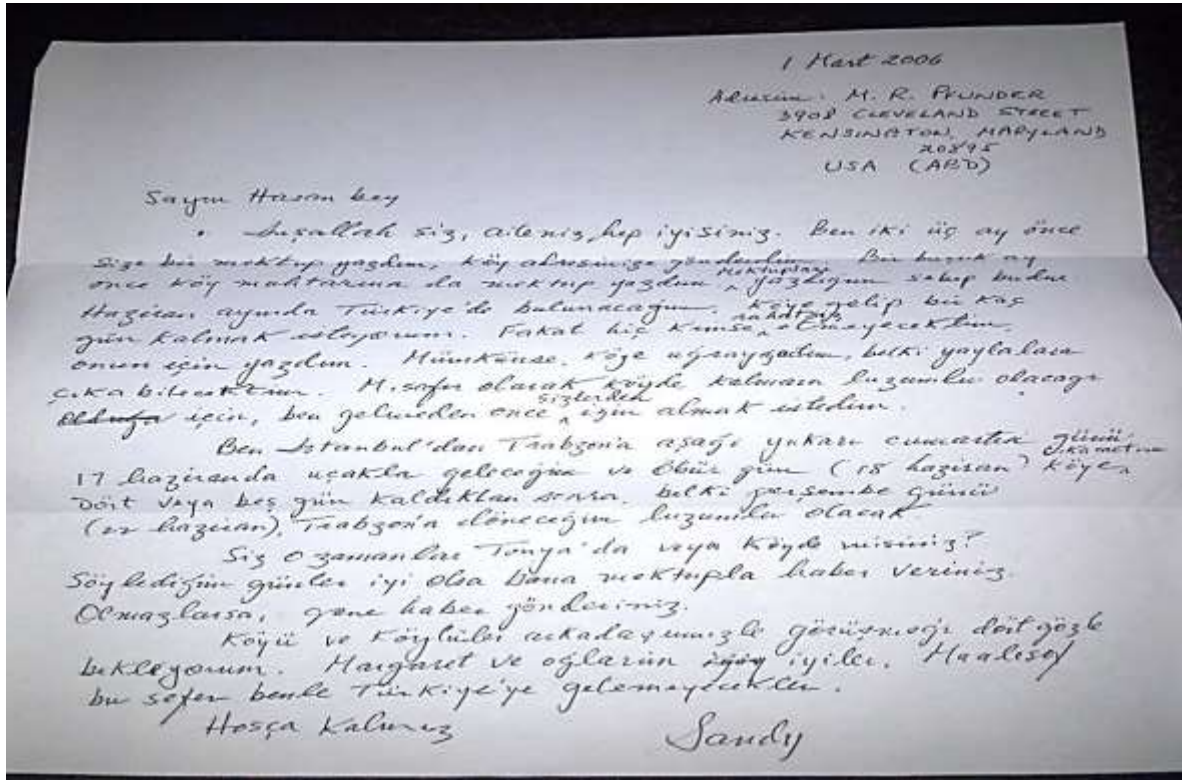 1 Mart 2006
Adresim: M. R. PFUNDER
3908 CLEVELAND STREET
KENSINGTON, MARYLAND
20895
USA (ABD)
Sayın Hasan bey
İnşallah siz, aileniz, hep iyisiniz. Ben iki üç ay önce
size bir mektup yazdım, köy adresinize gönderdim. Bir buçuk ay
önce köy muhtarına da mektup yazdım mektupları yazdığım sebep budur
Haziran ayında Türkiye'de bulunacağım. Köye gelip bir kaç
gün kalmak istiyorum. Fakat hiç kimse rahatsız etmeyecektim,
onun için yazdım. Mümkünse, köye uğrayacaktım, belki yaylalara
çıkabilecektim. Misafir olarak köyde kalmam luzumlu olacağı
için, ben gelmeden önce sizlerden izin almak istedim.
Ben İstanbul'dan Trabzon'a aşağı yukarı cumartesi günü
17 haziranda uçakla geleceğim ve öbür gün (18 haziran) köye
Dört veya beş gün kaldıktan sonra, belki perşembe günü
(22 haziran), Trabzon'a döneceğim luzumlu olacak.
Siz o zamanlar Tonya'da veya köyde misiniz?
Söylediğim günler iyi olsa bana mektupla haber veriniz.
Olmazlarsa, yene haber gönderiniz.
Köyü ve köylüler arkadaşımızle görüşmeği dört gözle
bekliyorum. Margaret ve oğlarım iyiler. Maalesef
bu sefer benle Türkiye'ye gelemeyecekler.
Hosça Kalınız
Sandy